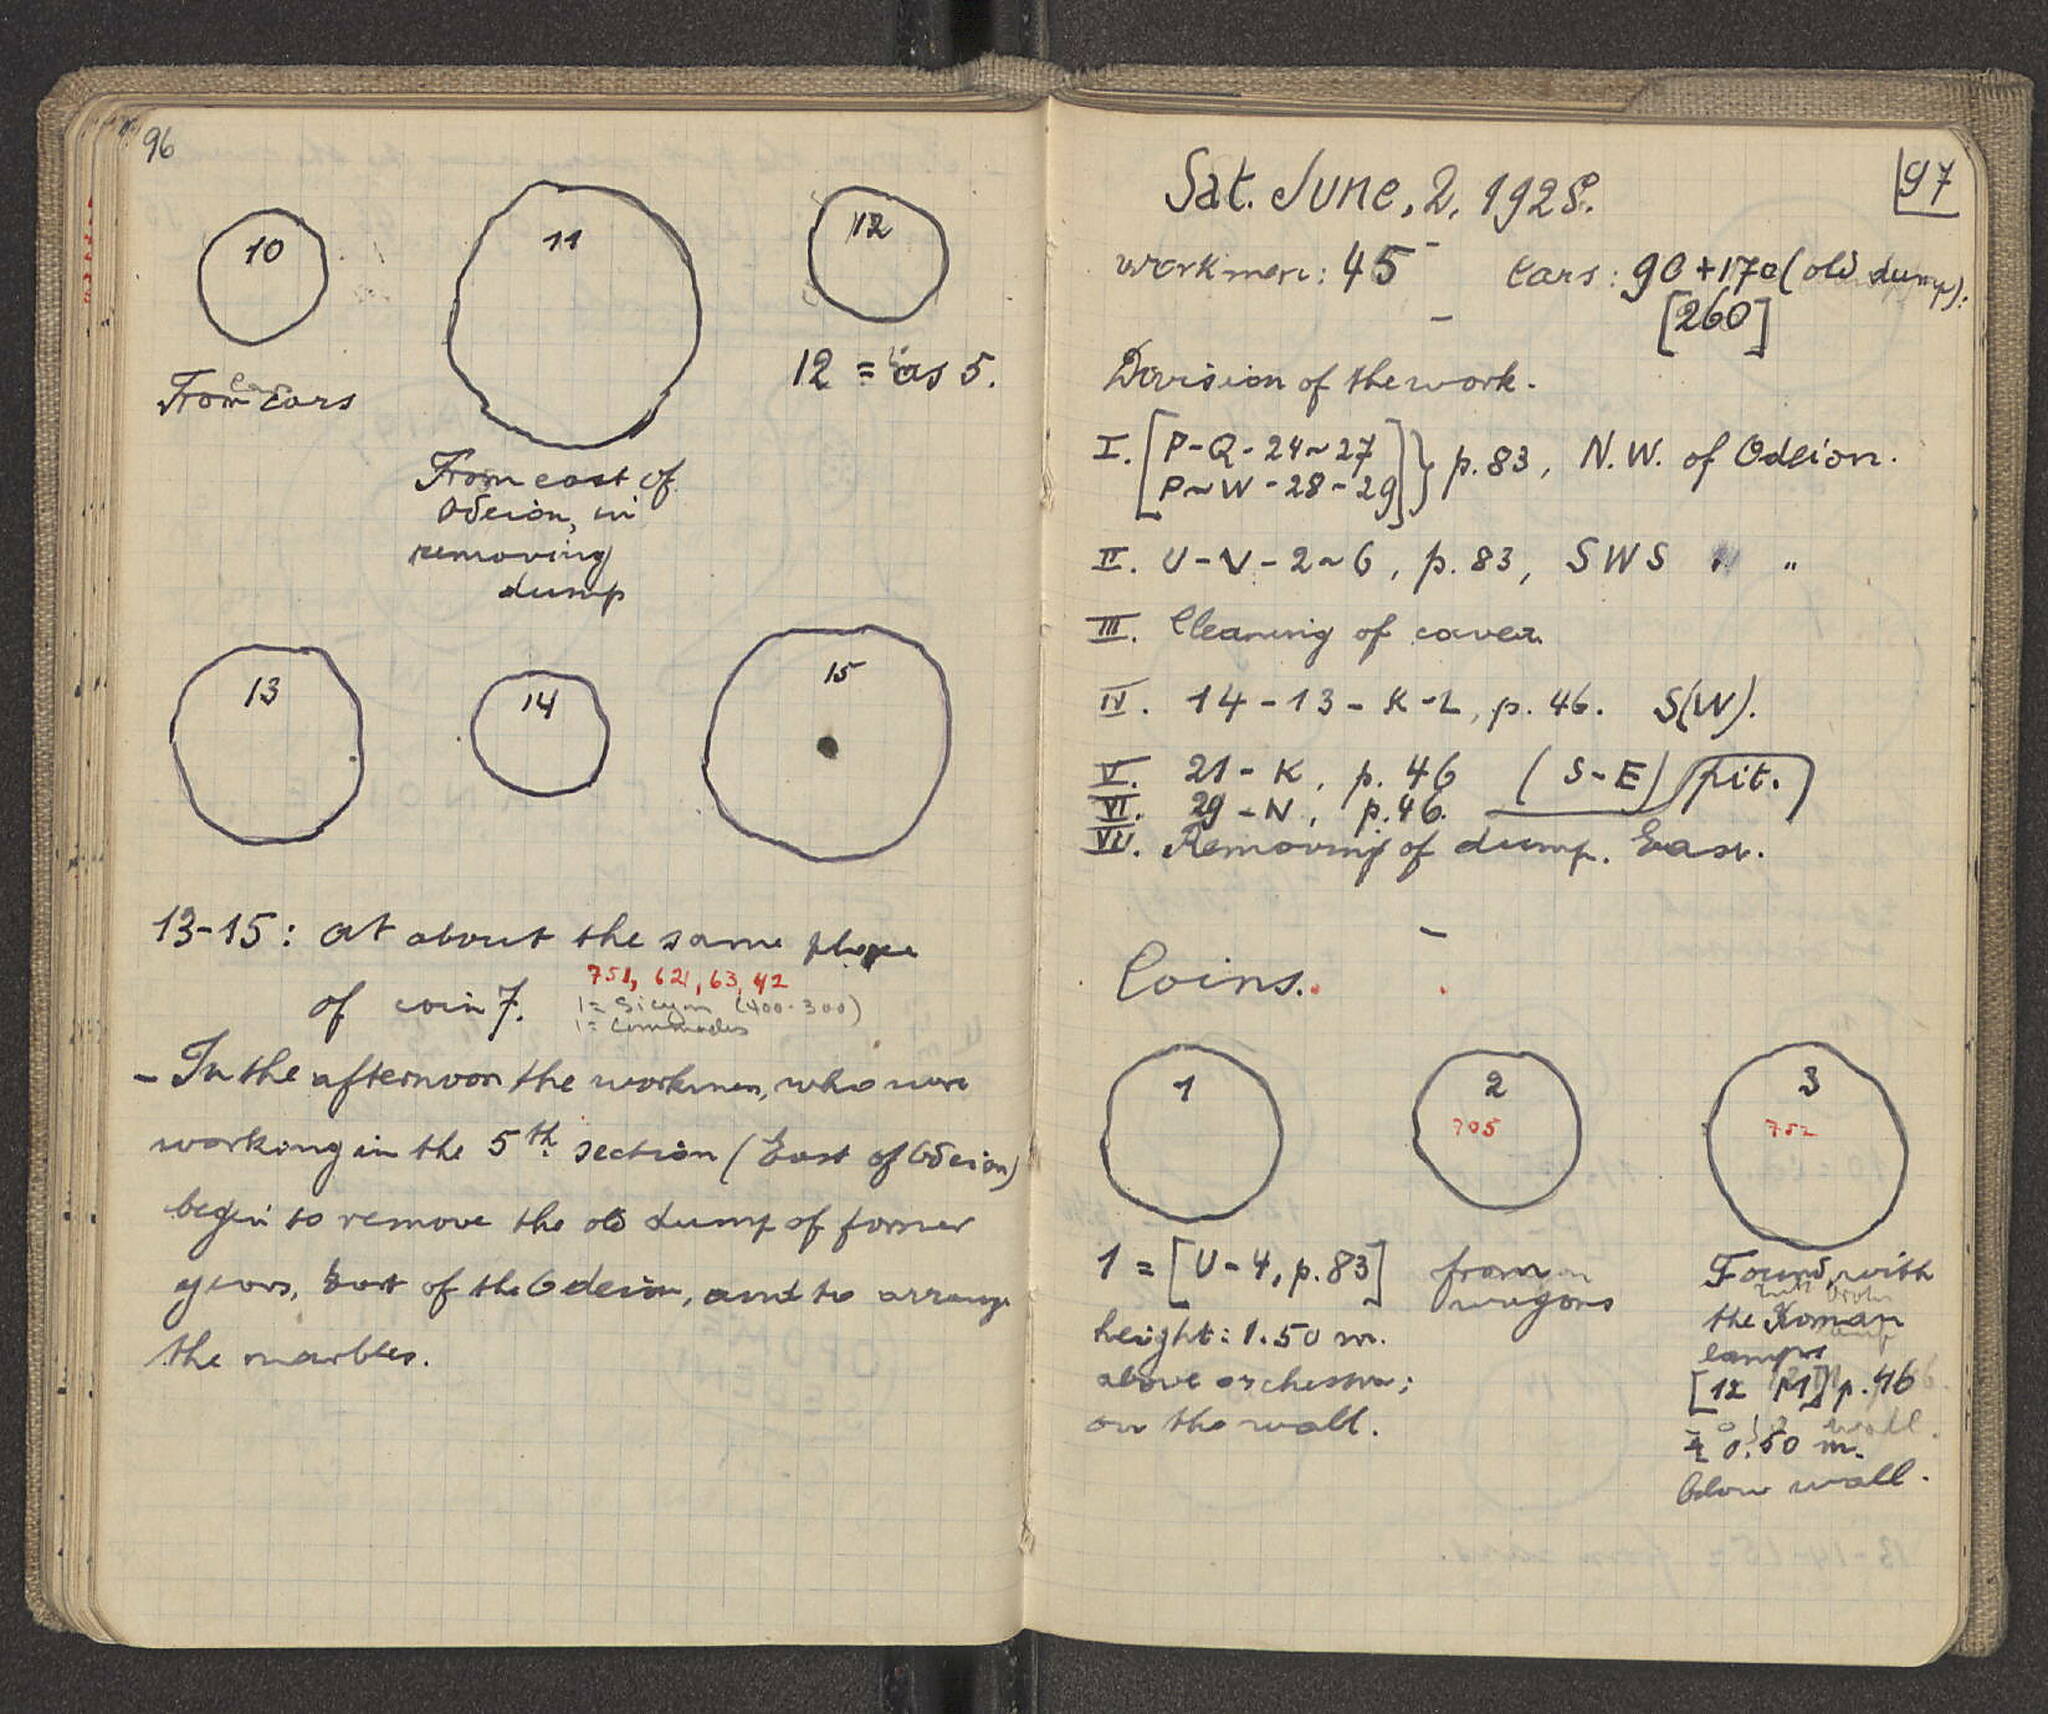 96
10
11
12
From cars
12 = as 5.
From east of
Odeion, in
removing
dump
13
14
15
13-15: at about the same place
of coin 7.
751, 621, 63, 42
1 = Sicyon (400-300)
1 = Commodus
- In the afternoon the workmen, who were
working in the 5th section (East of Odeion)
begin to remove the old dump of former
years, East of the Odeion, and to arrange
the marbles.
97
Sat. June, 2, 1928.
workmen: 45
Cars: 90 + 170 (old dump):
[260]
Division of the work.
I. [P-Q-24~27
P~W-28-29]} p.83, N.W. of Odeion.
II. U-V-2~6, p.83, SWS " "
III. Cleaning of cavea.
IV. 14-13-K-L, p. 46. S(W).
V. 21-K, p. 46 (S-E) pit.
VI. 29-N, p.46.
VII. Removing of dump. East.
Coins.
1
2
705
3
752
1 = [U-4, p.83]
height: 1.50 m.
above orchestra;
on the wall.
from
wagons
Found with
the Roman
lamps
[12 M] p.46
0.50 m.
below wall.